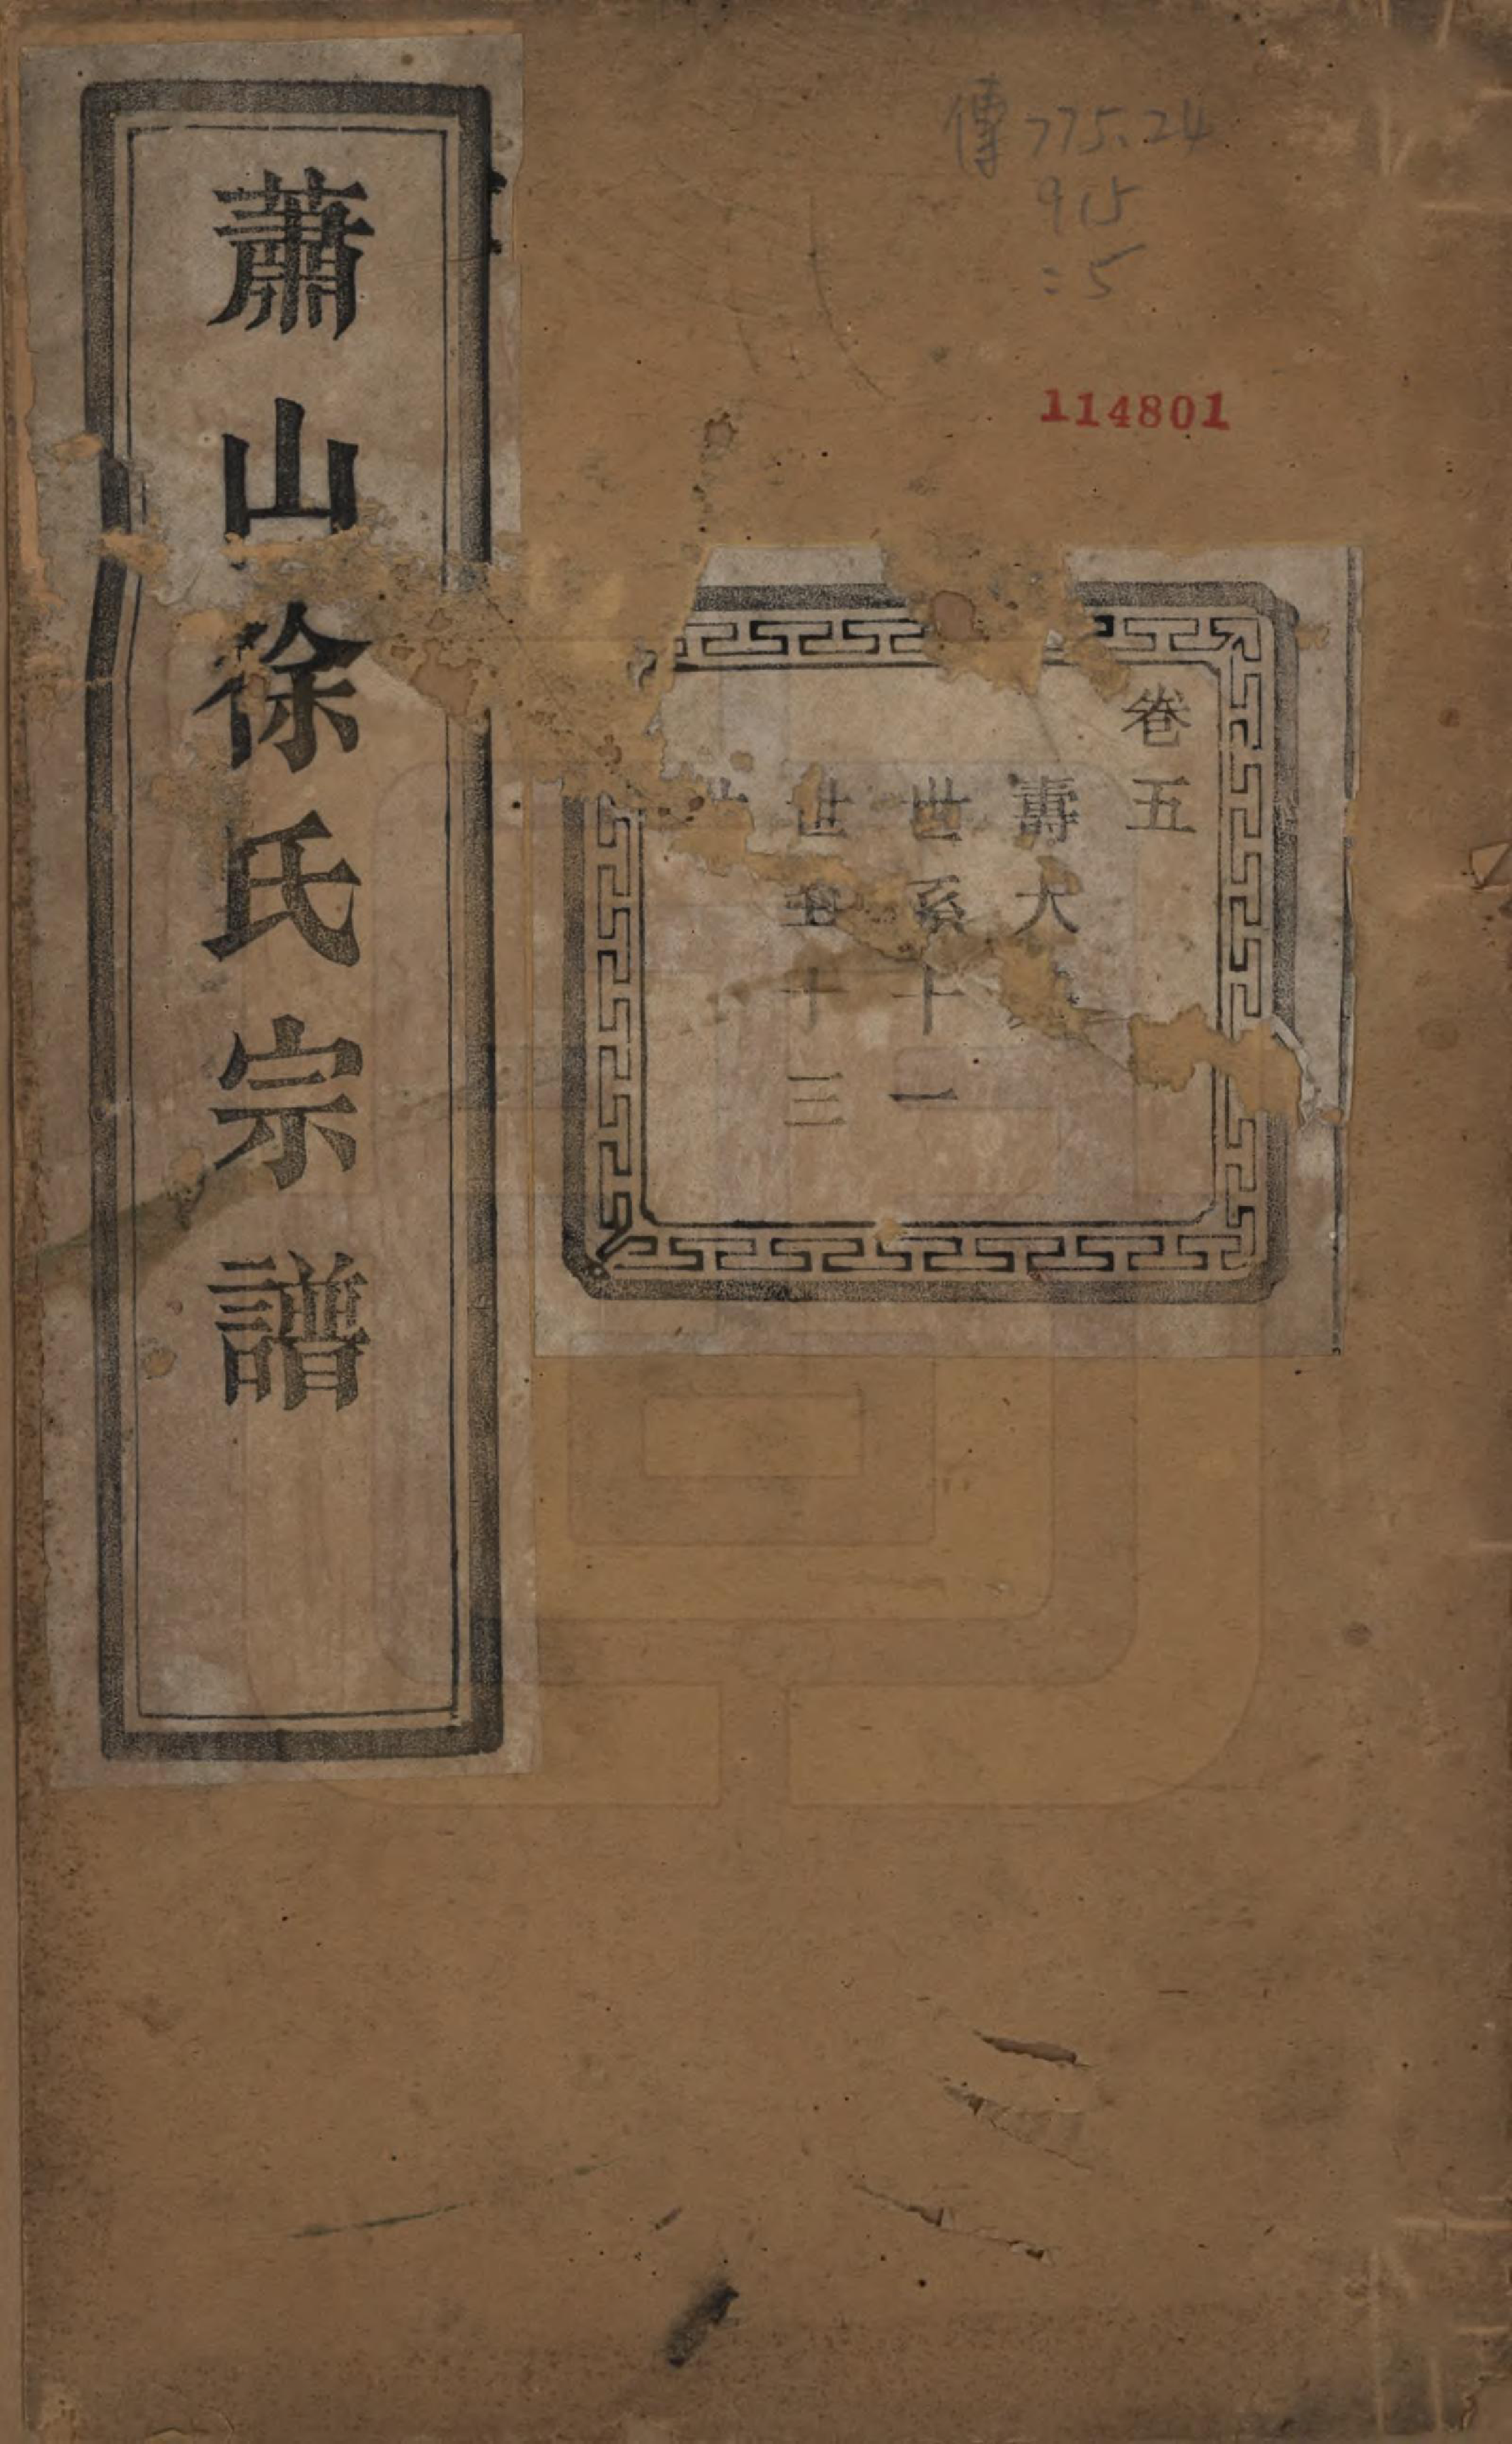 蕭山徐氏宗譜
傳775.24
915
:5
114801
卷五
壽大
世系十一
世系十三